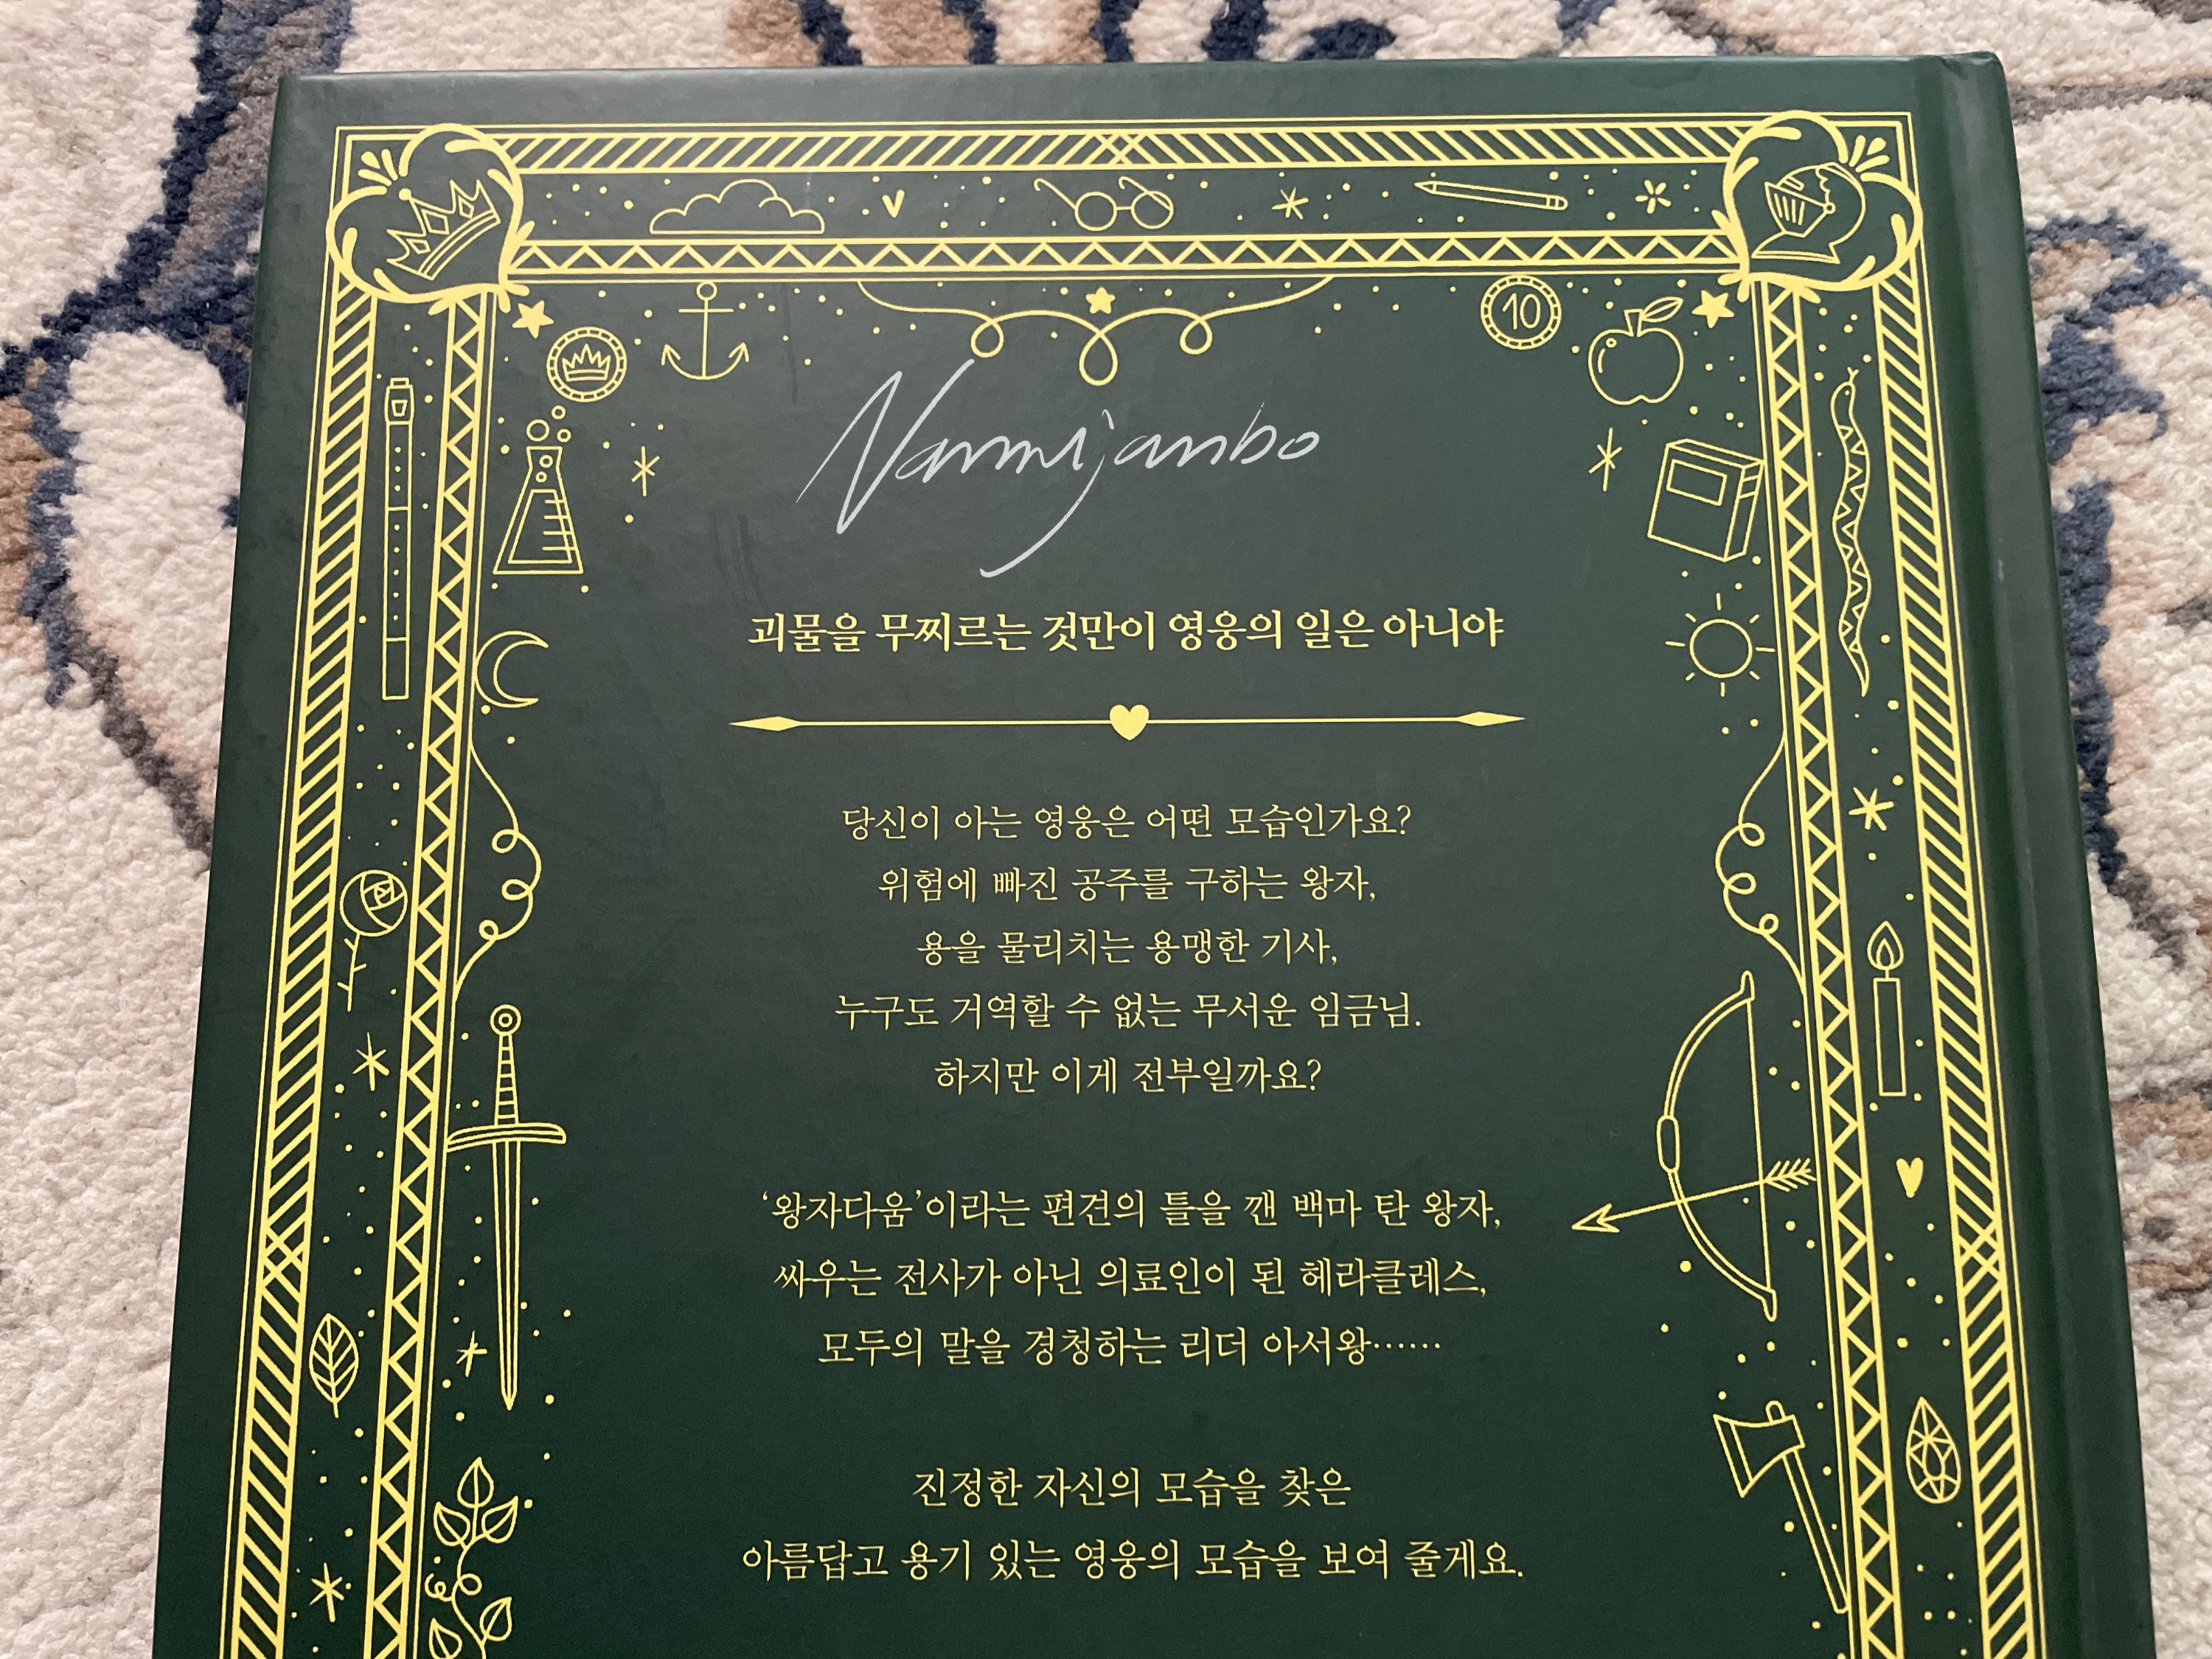 10
Nammijanbo
괴물을 무찌르는 것만이 영웅의 일은 아니야
당신이 아는 영웅은 어떤 모습인가요?
위험에 빠진 공주를 구하는 왕자,
용을 물리치는 용맹한 기사,
누구도 거역할 수 없는 무서운 임금님.
하지만 이게 전부일까요?
‘왕자다움’이라는 편견의 틀을 깬 백마 탄 왕자,
싸우는 전사가 아닌 의료인이 된 헤라클레스,
모두의 말을 경청하는 리더 아서왕……
진정한 자신의 모습을 찾은
아름답고 용기 있는 영웅의 모습을 보여 줄게요.